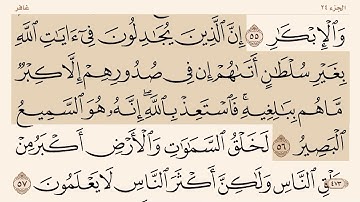 الجزء ٢٤ غافر
وَٱلْإِبْكَٰرِ ٥٥ إِنَّ ٱلَّذِينَ يُجَٰدِلُونَ فِىٓ ءَايَٰتِ ٱللَّهِ
بِغَيْرِ سُلْطَٰنٍ أَتَىٰهُمْ إِن فِى صُدُورِهِمْ إِلَّا كِبْرٌ
مَّا هُم بِبَٰلِغِيهِ ۚ فَٱسْتَعِذْ بِٱللَّهِ ۖ إِنَّهُۥ هُوَ ٱلسَّمِيعُ
ٱلْبَصِيرُ ٥٦ لَخَلْقُ ٱلسَّمَٰوَٰتِ وَٱلْأَرْضِ أَكْبَرُ مِنْ
ٱلنَّاسِ وَلَٰكِنَّ أَكْثَرَ ٱلنَّاسِ لَا يَعْلَمُونَ ٥٧
٤٧٣